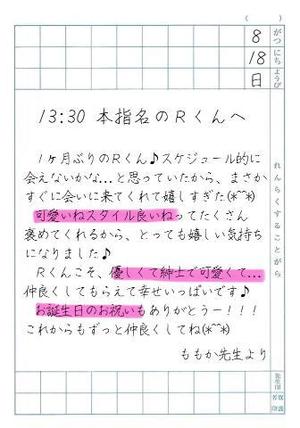 8
がつ
18
にち
日
ようび
れんらくすることがら
13:30 本指名のRくんへ
1ヶ月ぶりのRくん♪スケジュール的に
会えないかな...と思っていたから、まさか
すぐに会いに来てくれて嬉しすぎた(*^^*)
可愛いねスタイル良いねってたくさん
褒めてくれるから、とっても嬉しい気持ち
になりました♪
Rくんこそ、優しくて紳士で可愛くて...
仲良くしてもらえて幸せいっぱいです♪
お誕生日のお祝いもありがとうー!!!
これからもずっと仲良くしてね(*^^*)
ももか先生より